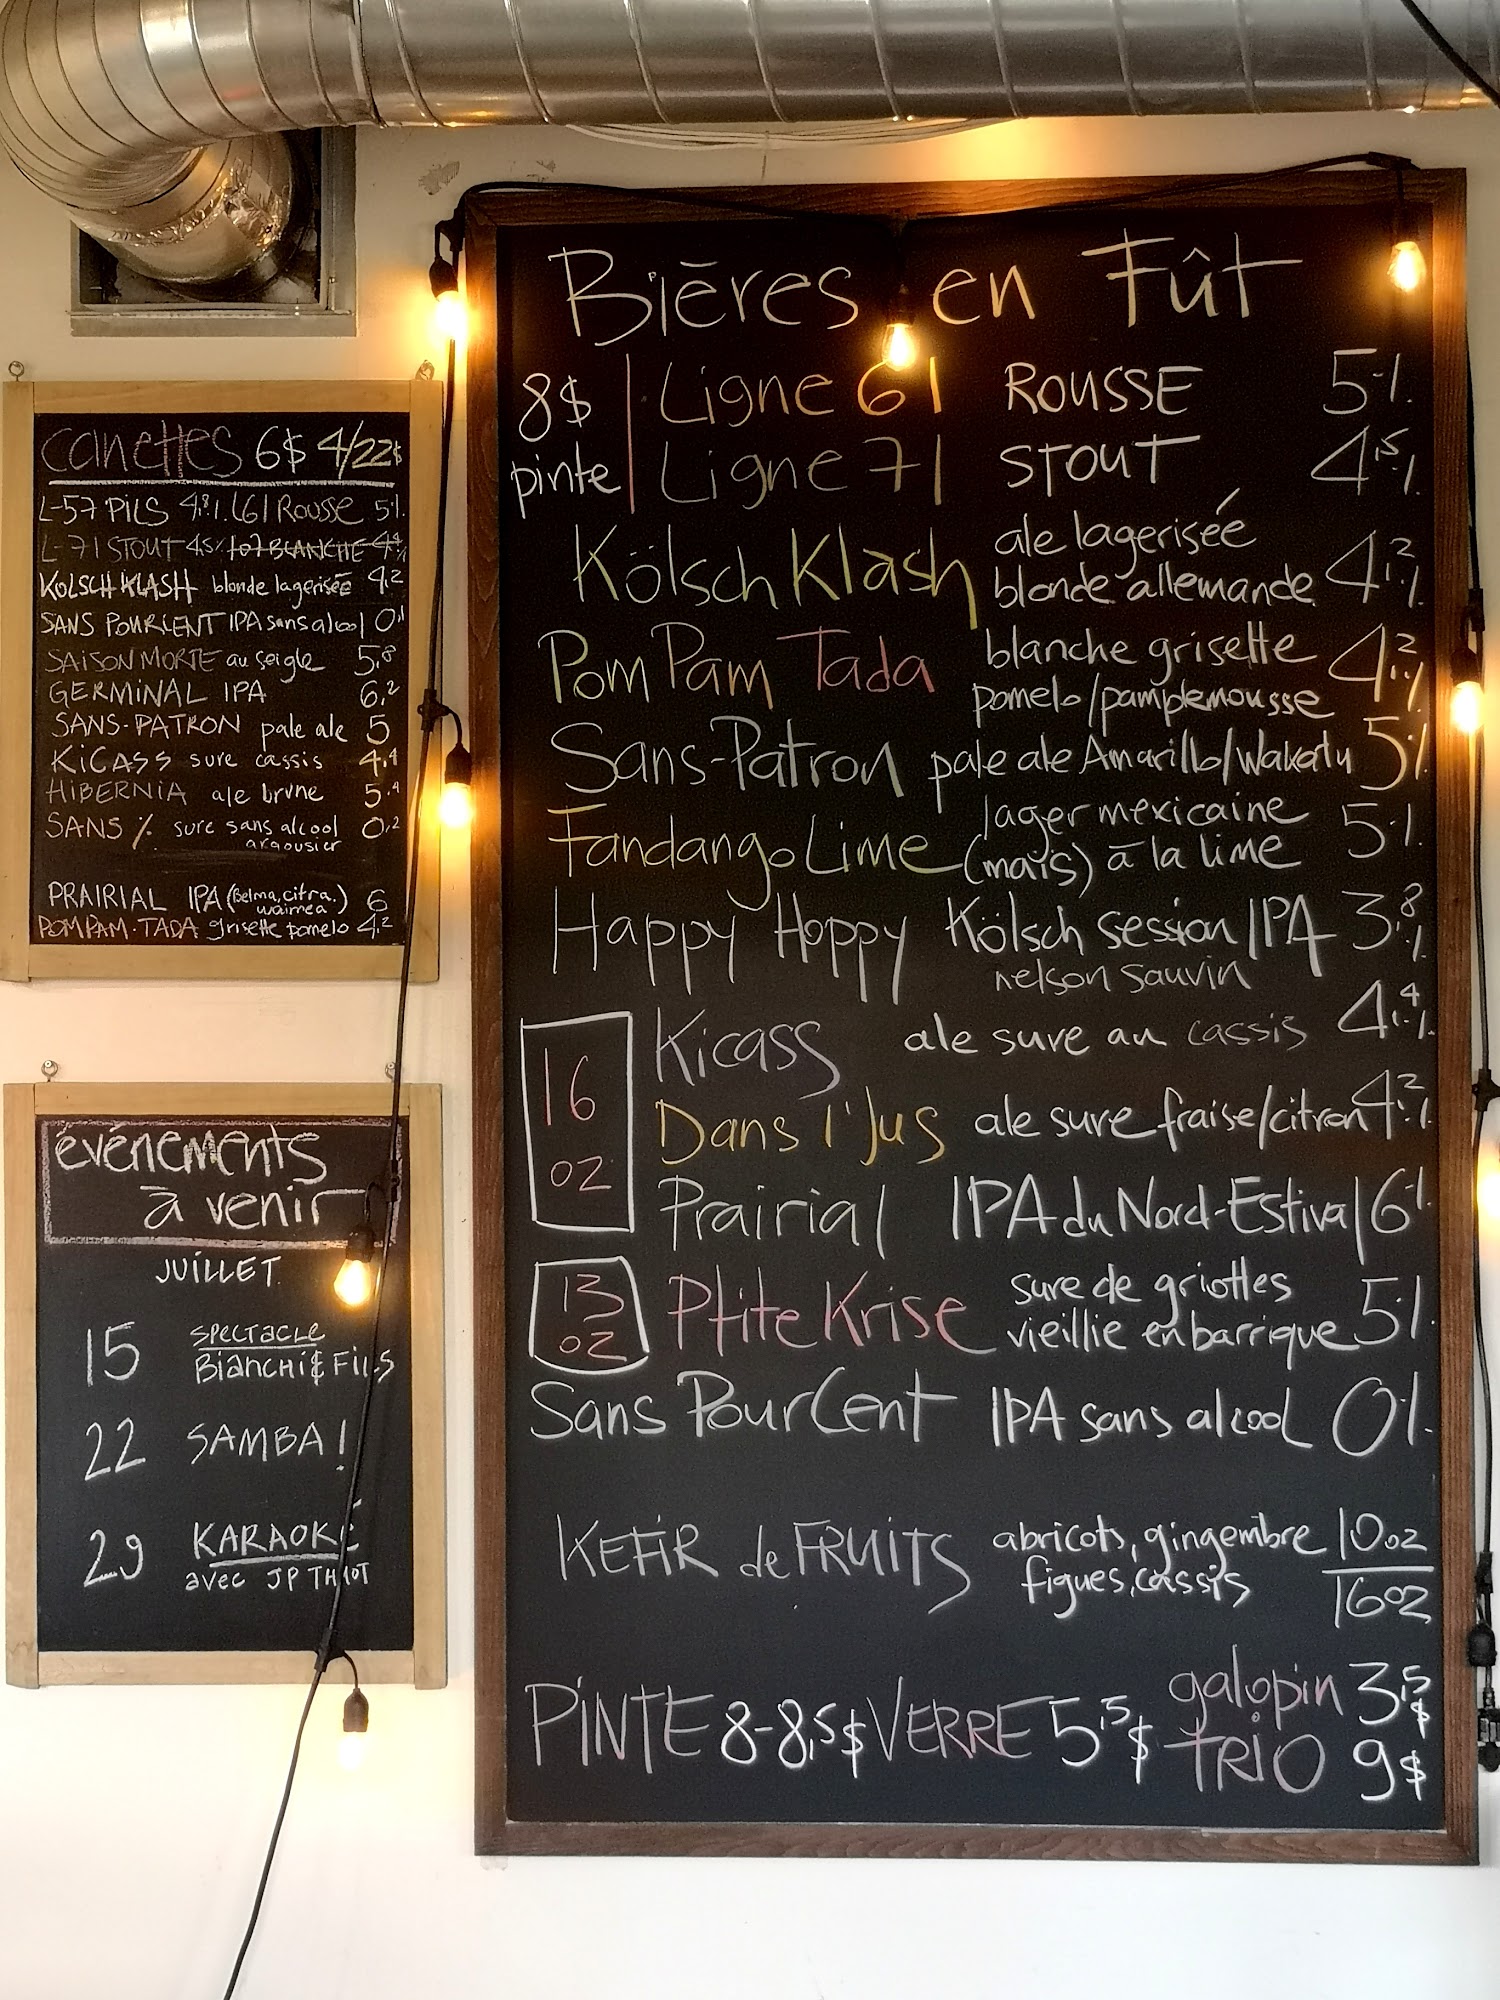 Bières en Fût
8$ pinte
Ligne 61 ROUSSE 5%
Ligne 71 STOUT 4,5%
Kölsch Klash ale lagerisée blonde allemande 4,2%
Pom Pam Tada blanche grisette pomelo/pamplemousse 4,2%
Sans-Patron pale ale Amarillo/Wakatu 5%
Fandango Lime lager mexicaine (maïs) à la lime 5%
Happy Hoppy Kölsch session IPA nelson sauvin 3,8%
16 oz
Kicass ale sure au cassis 4,4%
Dans l'Jus ale sure fraise/citron 4,2%
Prairial IPA du Nord-Estival 6%
13 oz
Ptite Krise sure de griottes vieillie en barrique 5%
Sans PourCent IPA sans alcool 0%
KEFIR de FRUITS abricots, gingembre figues, cassis 10oz 16oz
PINTE 8-8,5$ VERRE 5,5$ galopin 3,5$
TRIO 9$
canettes 6$ 4/22$
L-57 PILS 4,8%. L61 ROUSSE 5%
L-71 STOUT 4,5% BLANCHE
KOLSCH KLASH blonde lagerisée 4,2
SANS POURCENT IPA sans alcool 0,1
SAISON MORTE au seigle 5,8
GERMINAL IPA 6,2
SANS-PATRON pale ale 5
KICASS sure cassis 4,4
HIBERNIA ale brune 5,4
SANS % sure sans alcool argousier 0,2
PRAIRIAL IPA (Belma, citra. waimea) 6
POMPAM-TADA grisette pomelo 4,2
événements
à venir
JUILLET
15 SPECTACLE
BIANCHI & FILS
22 SAMBA!
29 KARAOKÉ
avec JP